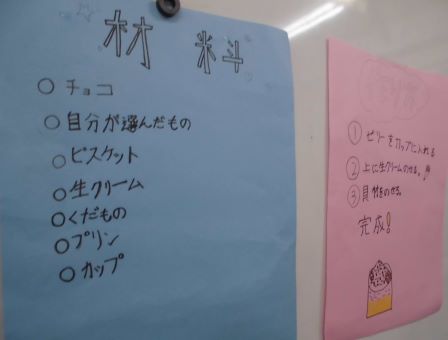 材料
○ チョコ
○ 自分が選んだもの
○ ビスケット
○ 生クリーム
○ くだもの
○ プリン
○ カップ
作り方
① ゼリーをカップに入れる
② 上に生クリームのせる。
③ 具材をのせる。
完成!